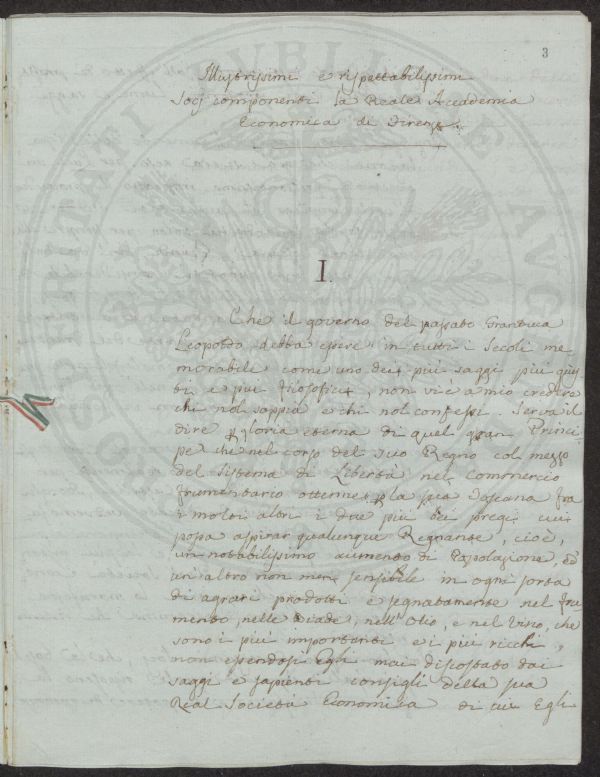 3
Illustrissimi e rispettabilissimi
Socj componenti la Reale Accademia
Economica di Firenze.
I.
Che il governo del passato Granduca
Leopoldo debba essere in tutti i Secoli me
morabile come uno dei più saggi più giu
sti, e più filosofici, non vi è a mio credere
chi nol sappia e chi nol confessi. Serva il
dire p gloria eterna di quel gran Princi-
pe che nel corso del suo Regno col mezzo
del Sistema di Libertà nel Commercio
frumentario ottenne p la sua Toscana fra
i molti altri i due più bei pregi cui
possa aspirar qualunque Regnante, cioè,
un notabilissimo aumento di Popolazione, ed
un altro non men sensibile in ogni sorta
di agrarj prodotti e segnatamente nel fru
mento, nelle Biade, nell'Olio, e nel Vino, che
sono i più importanti e i più ricchi,
non essendosi Egli mai discostato dai
saggi e sapienti consigli della sua
Real Società Economica di cui Egli